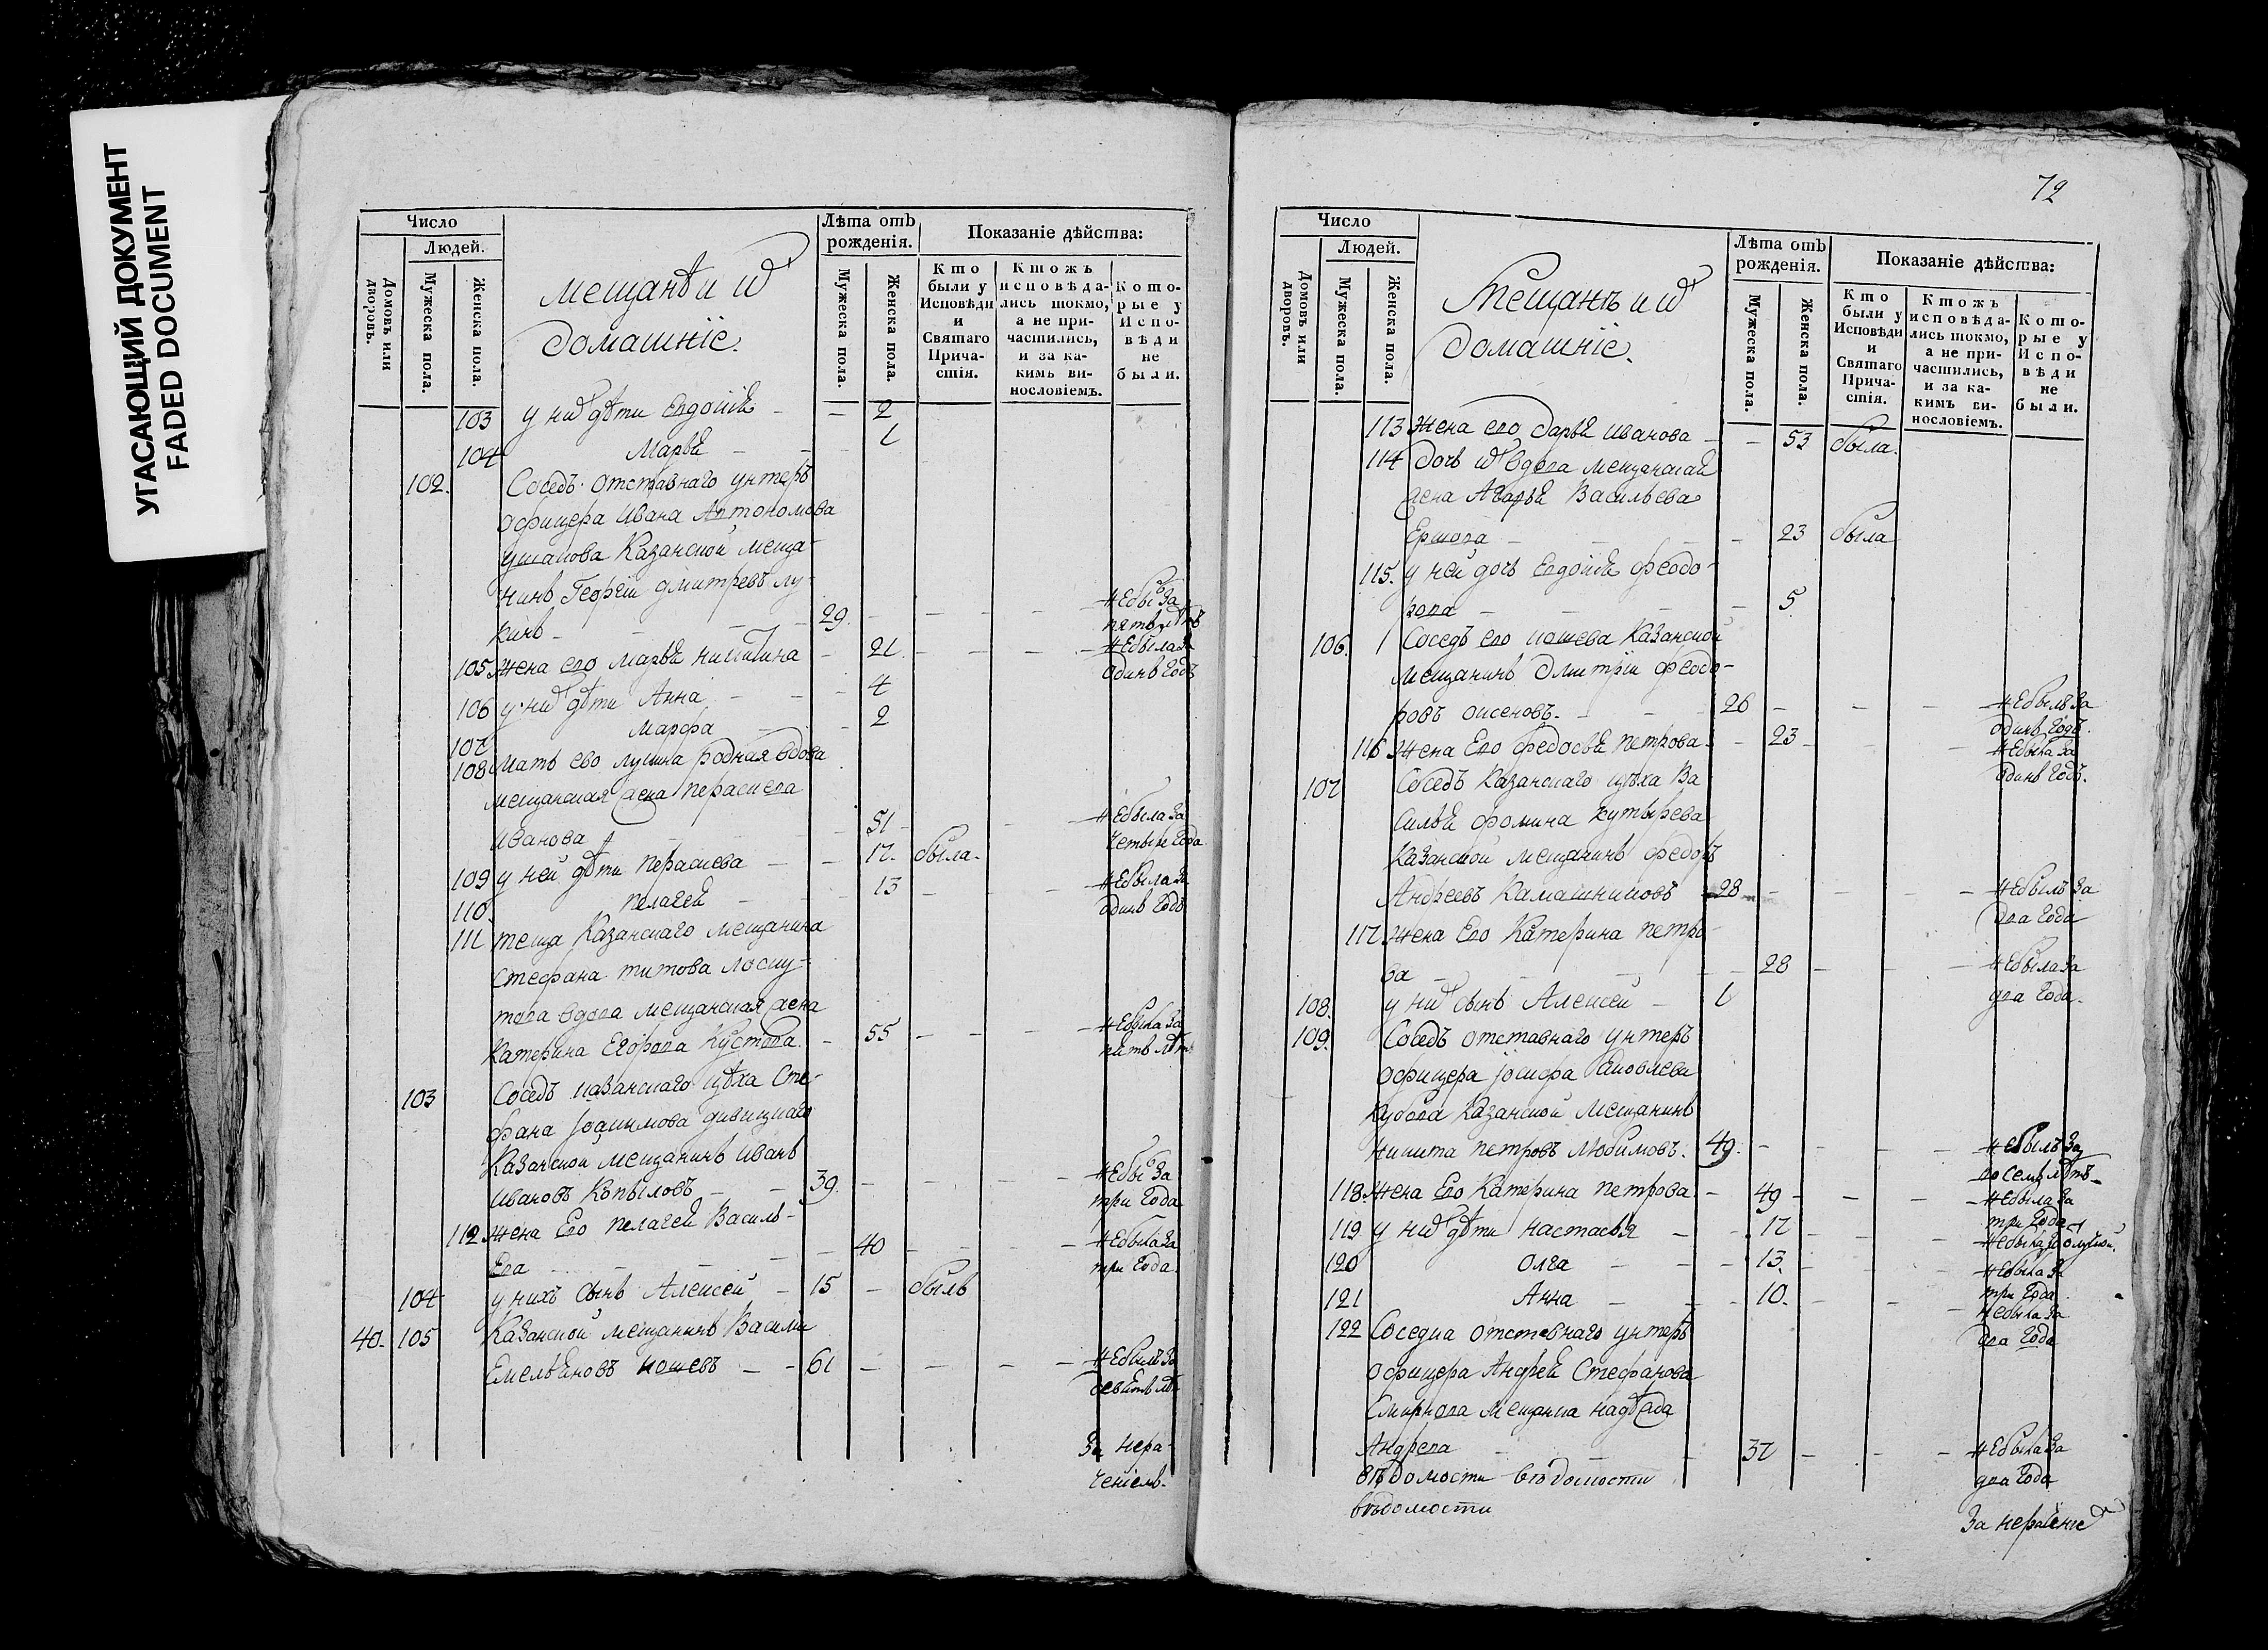 УГАСАЮЩИЙ ДОКУМЕНТ
FADED DOCUMENT
Число
Людей.
Домовъ или дворовъ.
Мужеска пола.
Женска пола.
мещанѣ и ихъ
домашніе.
Лѣта отъ рожденія.
Мужеска пола.
Женска пола.
Показаніе дѣйства:
Кто были у Исповѣди и Святаго Причастія.
Ктожъ исповѣдались токмо, а не причастились, и за какимъ винословіемъ.
Которые у Исповѣди не были.
103 у них дѣти Евдокія - - 2
104 Марья - - 1
102. Соседъ отставнаго унтеръ
офицера Ивана Автономова
ушакова Казанской меща-
нинъ Георгіи дмитревъ лу-
кинъ - - 29. - - - небы за пять лѣтъ
105 жена ево марья никитина - 21 - - - небыла за одинъ годъ
106 у них дѣти Анна - - 4
107 марфа - - 2
108 мать ево лукина родная вдова
мещанская жена параскева
Иванова - - 51 - - небыла за четыре года
109 у ней дѣти параскева - - 17. была.
110. пелагея - - 13 - - небыла за одинъ годъ
111 теща Казанскаго мещанина
стефана титова лоску-
това вдова мещанская жена
катерина Егорова Кустова. - 55 - - - небыла за пять лѣт
103 Соседъ казанскаго цѣха Сте-
фана Іоакимова
Казанской мещанинъ Иванъ
Ивановъ Копыловъ - - 39. - - - небы за три года
112 жена Ево пелагея Василь-
ева - - 40 - - - небыла за три года.
104 у нихъ сынъ Алексей - 15 - былъ
40. 105 Казанской мещанинъ Васили
Емельяновъ кошевъ - - 61 - - - - небылъ за девять лѣт
За нера-
ченіемъ.
72
Число
Людей.
Домовъ или дворовъ.
Мужеска пола.
Женска пола.
Мещанъ и ихъ
домашніе.
Лѣта отъ рожденія.
Мужеска пола.
Женска пола.
Показаніе дѣйства:
Кто были у Исповѣди и Святаго Причастія.
Ктожъ исповѣдались токмо, а не причастились, и за какимъ винословіемъ.
Которые у Исповѣди не были.
113 жена ево дарья иванова - - 53 была.
114 дочь ихъ вдова мещанская
жена Агарья Васильева
Ершова - - 23 была
115. у ней дочь Евдокія феодо-
рова - - 5
106. Соседъ ево кошева Казанской
мещанинъ дмитріи феодо-
ровъ оксеновъ. - - 26 - - - небылъ за одинъ годъ.
116 жена Ево федосья петрова. - 23 - - небыла за одинъ годъ.
107 Соседъ казанскаго цѣха Ва
силья фомина кутырева
казанской мещанинъ федоръ
Андреевъ Камашниковъ - 28 - - - небылъ за два года
117. жена Ево Катерина петро-
ва - - 28 - - - небыла за два года.
108. у них сынъ Алексей - 1
109. Соседъ отставнаго унтеръ
офицера іосифа яковлева
кубова казанской мещанинъ
никита петровъ Любимовъ. 49. - - - небылъ за восемь лѣтъ
118. жена Ево Катерина петрова. - 49 - - - небыла за три года
119 у них дѣти настасья - - 17 - - небыла за
120 Олга - - 13. - - небыла за три года.
121 Анна - - 10. - - небыла за два года
122 Соседка отставнаго унтеръ
офицера Андрея Стефанова
Смирнова мещанка надежда
Андрева - - 37 - - - небыла за два года
вѣдомости вѣдомости
вѣдомости
За нераченіе